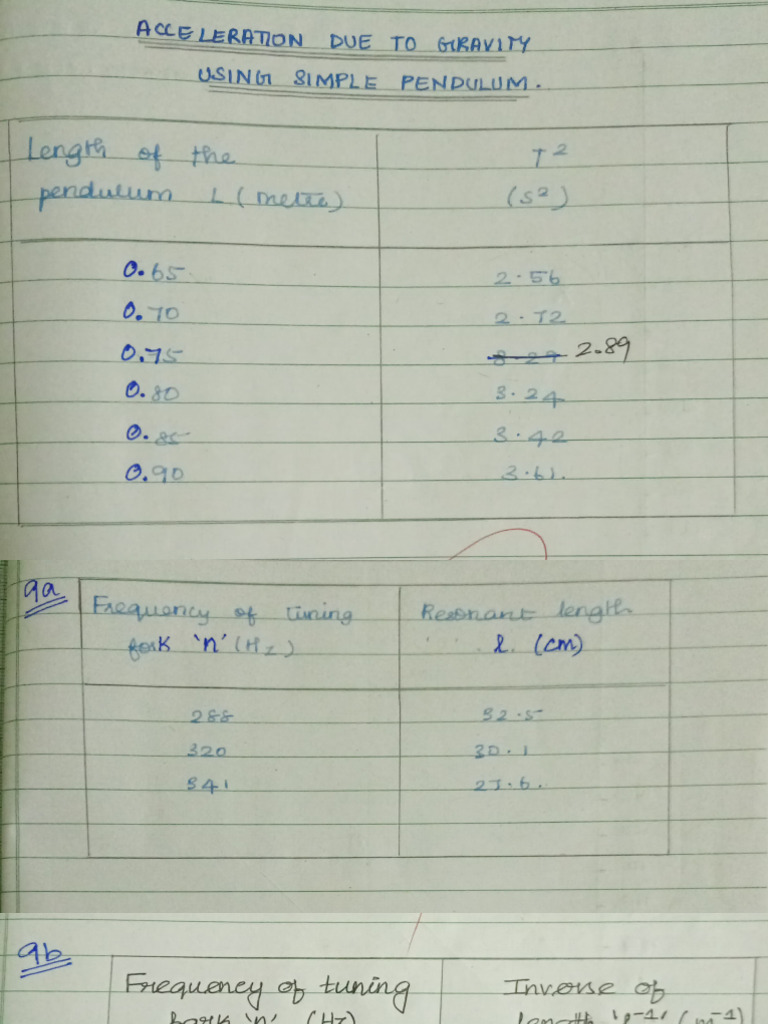 ACCELERATION DUE TO GRAVITY
USING SIMPLE PENDULUM.
Length of the T²
pendulum L (metre) (s²)
0.65 2.56
0.70 2.72
0.75 2.89
0.80 3.24
0.85 3.42
0.90 3.61.
9a
Frequency of tuning Resonant length
fork 'n' (Hz) l (cm)
288 32.5
320 30.1
341 27.6.
9b
Frequency of tuning Inverse of
fork 'n' (Hz) length 'l⁻¹' (m⁻¹)